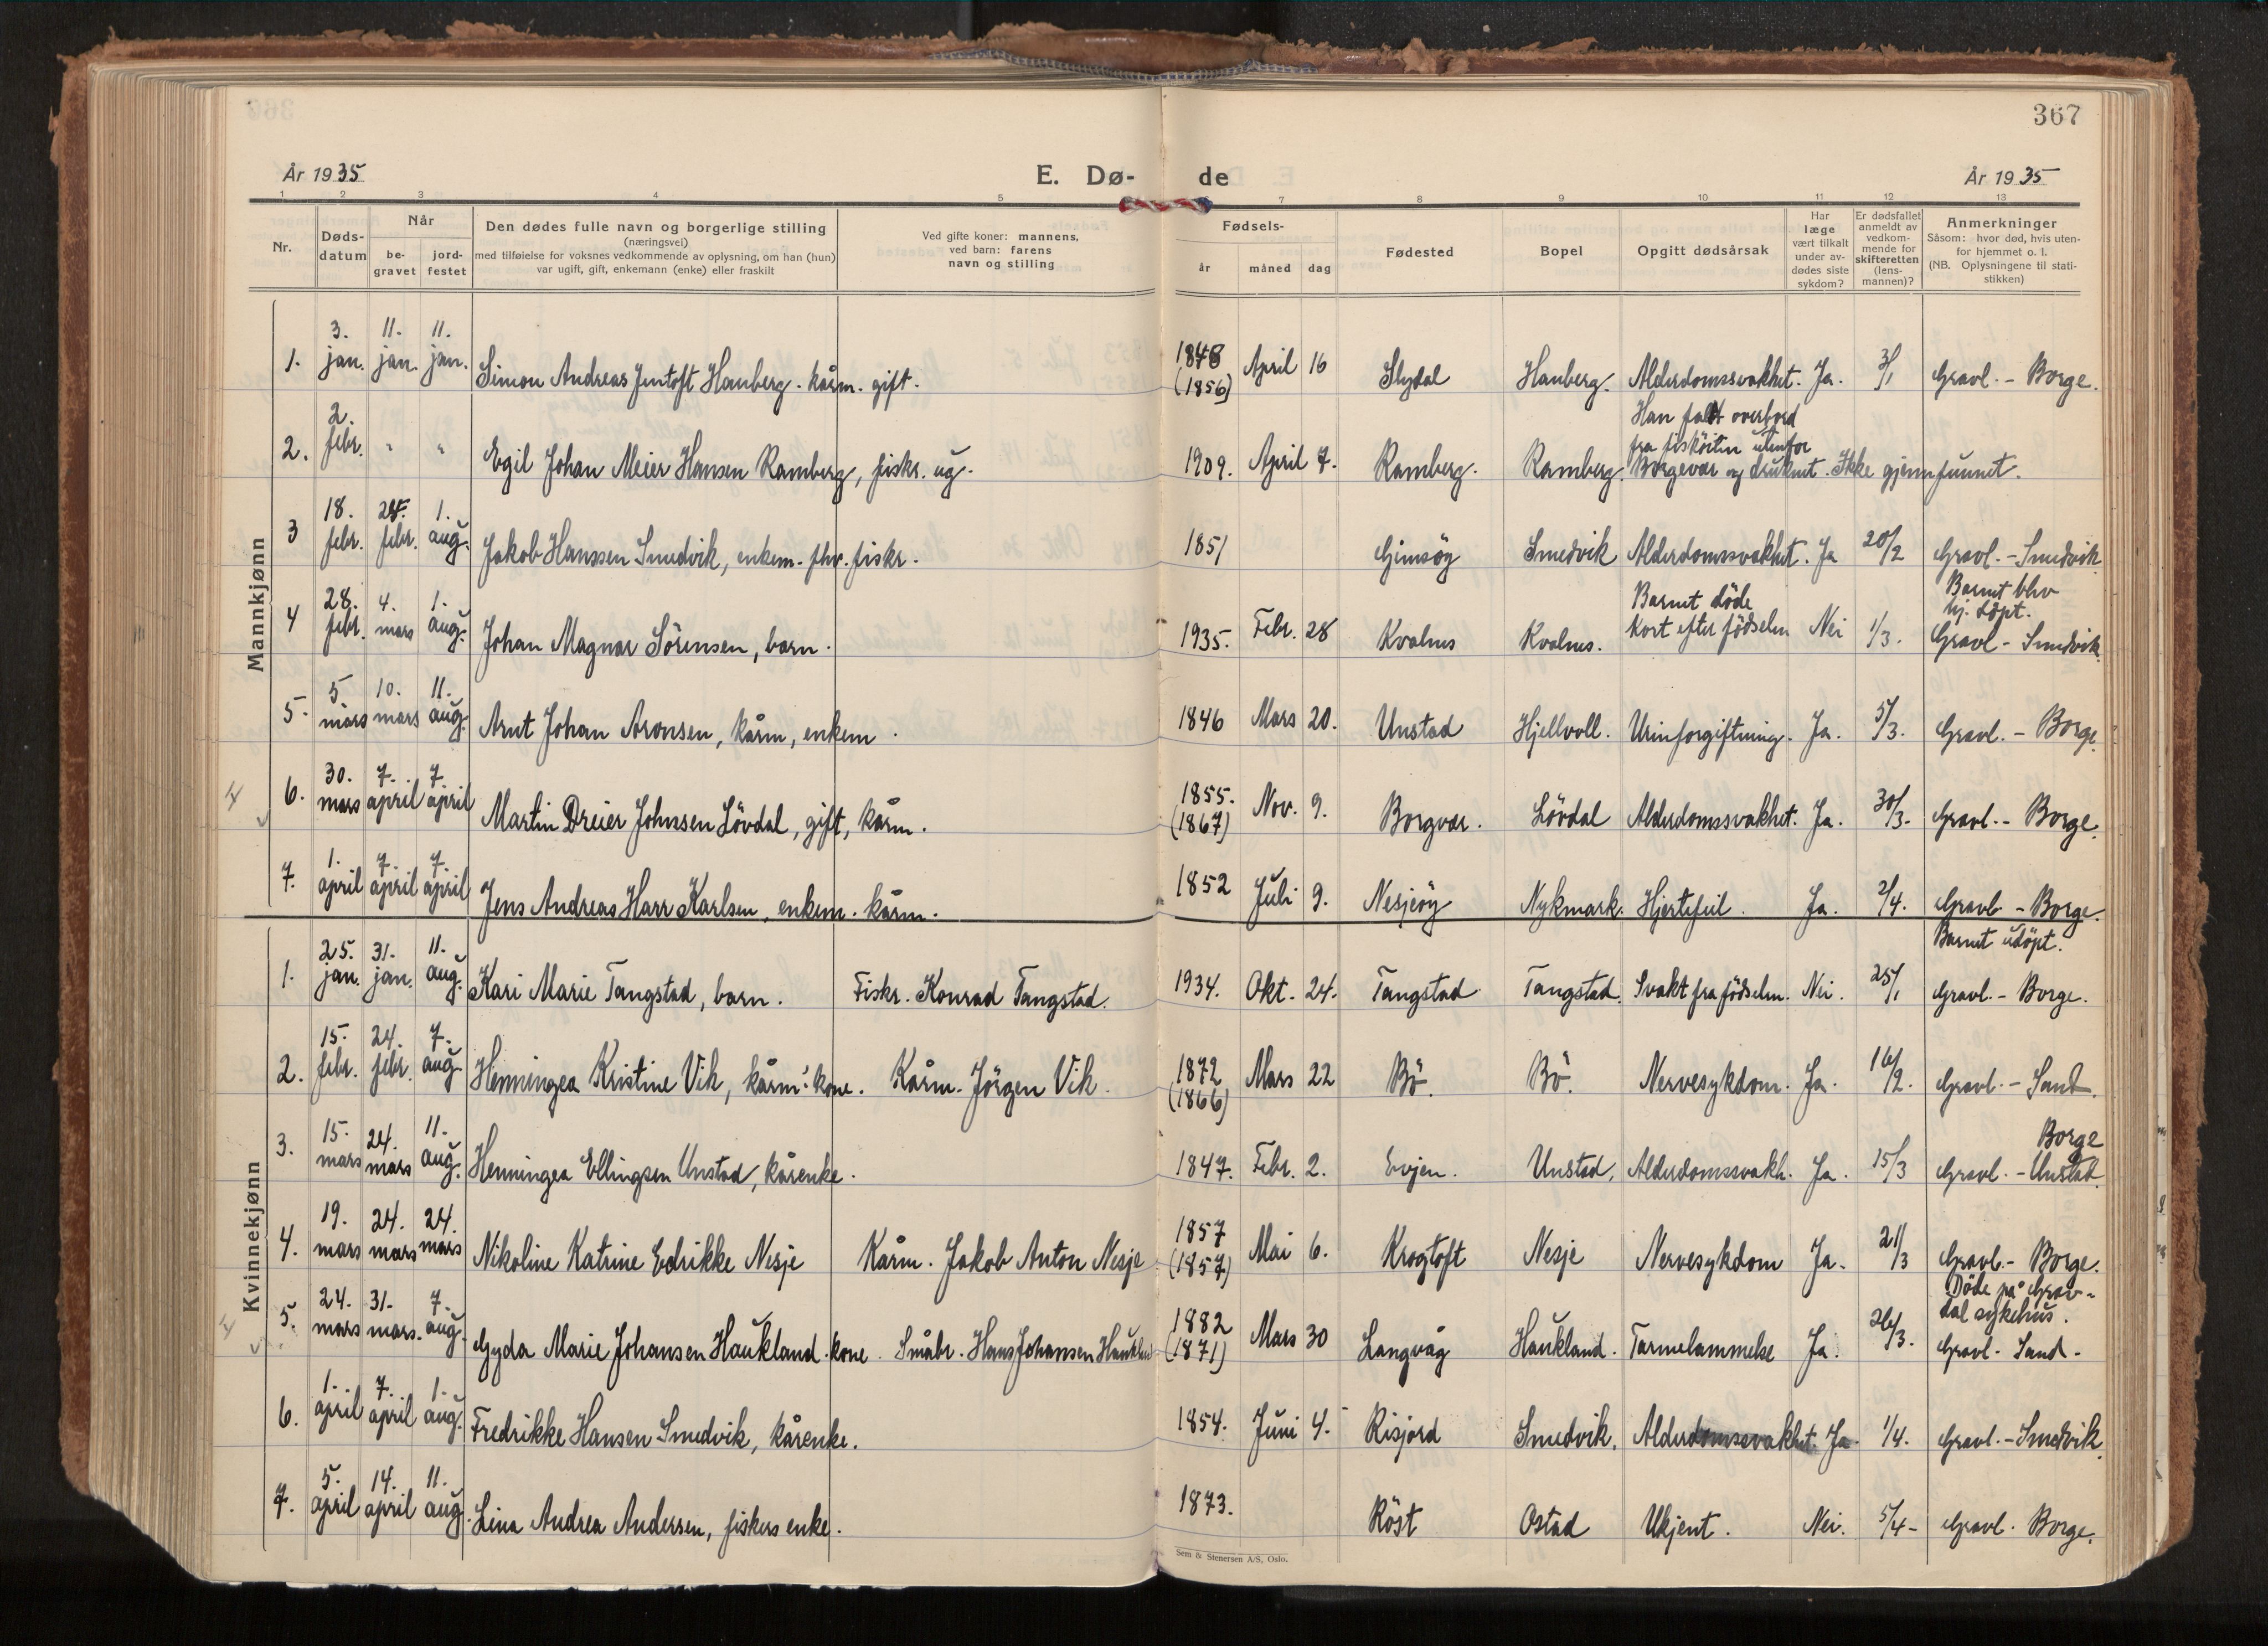 367
År 1935 E. Dø- de År 1935
1 2 3 4 5 7 8 9 10 11 12 13
Nr. Døds-datum Når be-gravet jord-festet Den dødes fulle navn og borgerlige stilling (næringsvei) med tilføielse for voksnes vedkommende av oplysning, om han (hun) var ugift, gift, enkemann (enke) eller fraskilt Ved gifte koner: mannens, ved barn: farens navn og stilling Fødsels- år måned dag Fødested Bopel Opgitt dødsårsak Har læge vært tilkalt under av-dødes siste sykdom? Er dødsfallet anmeldt av vedkom-mende for skifteretten (lens-mannen)? Anmerkninger Såsom: hvor død, hvis uten-for hjemmet o. l. (NB. Oplysningene til stati-stikken)
Mannkjønn
1. 3. jan. 11. jan. 11. jan. Simon Andreas Jentoft Hauberg. kårm. gift. 1848 (1856) April 16 Slydal Hauberg. Alderdomssvakhet. Ja. 3/1 Gravl. - Borge.
2. 2. febr. " " Egil Johan Meier Hansen Ramberg, fiskr. ug. 1909. April 7. Ramberg. Ramberg. Han falt overbord fra fisköiten utenfor Borgevær og druknet. Ikke gjenfunnet.
3 18. febr. 24. febr. 1. aug. Jakob Hanssen Smedvik, enkem. fhv. fiskr. 1851 Gimsöy Smedvik Alderdomssvakhet. Ja 20/2 Gravl. - Smedvik
4 28. febr. 4. mars 1. aug. Johan Magnar Sörensen, barn. 1935. Febr. 28 Kvalnes Kvalnes. Barnet döde kort efter födselen Nei 1/3. Barnet blev hj. döpt. Gravl - Smedvik.
5. 5 mars 10. mars 11. aug. Arnt Johan Aronsen, kårm, enkem. 1846 Mars 20. Unstad Hjellvoll. Urinforgiftning. Ja. 5/3. Gravl. - Borge.
4 6. 30. mars 7. april 7. april Martin Dreier Johnsen Lövdal, gift, kårm. 1855. (1867) Nov. 9. Borgvær. Lövdal Alderdomssvakhet. Ja. 30/3. Gravl. - Borge.
7. 1. april 7. april 7. april Jens Andreas Harr Karlsen, enkem. kårm. 1852 Juli 9. Nesjeöy Nykmark. Hjertefeil. Ja. 2/4. Gravl - Borge.
Kvinnekjønn
1. 25. jan. 31. jan. 11. aug. Kari Marie Tangstad, barn. Fiskr. Konrad Tangstad. 1934. Okt. 24. Tangstad Tangstad. Svakt fra födselen. Nei. 25/1 Barnet udöpt. Gravl. - Borge.
2. 15. febr. 24. febr. 7. aug. Henningea Kristine Vik, kårm. kone. Kårm. Jörgen Vik. 1872 (1866) Mars 22 Bö. Bö. Nervesykdom. Ja. 16/2. Gravl. - Sand.
3. 15. mars 24. mars 11. aug. Henningea Ellingsen Unstad, kårenke. 1847. Febr. 2. Evjen. Unstad. Alderdomssvakh. Ja. 15/3 Gravl. - Unstad. Borge
4. 19. mars 24. mars 24. mars Nikoline Katrine Edrikke Nesje Kårm. Jakob Anton Nesje 1857 (1857) Mai 6. Krogtoft Nesje Nervesykdom Ja. 21/3 Gravl. - Borge.
4 5. 24. mars 31. mars. 7. aug. Gyda Marie Johansen Haukland. kone. Småbr. Hans Johansen Haukland 1882 (1871) Mars 30 Langvåg Haukland. Tarmelammelse Ja. 26/3. Döde på Grav-dal sykehus. Gravl. Sand.
6. 1. april 7. april 1. aug. Fredrikke Hansen Smedvik, kårenke. 1854. Juni 4. Risjord Smedvik. Alderdomssvakhet. Ja. 1/4. Gravl. - Smedvik.
7. 5. april 14. april 11. aug. Lina Andrea Andersen, fiskers enke. 1873. Röst Ostad Ukjent. Nei. 5/4 - Gravl. Borge.
Sem & Stenersen A/S, Oslo.